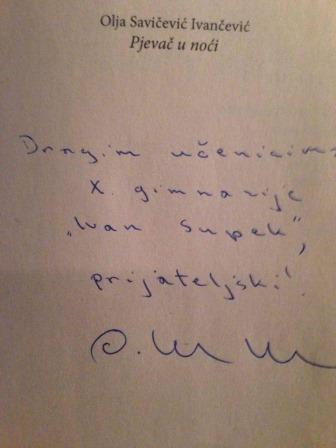 Olja Savičević Ivančević
Pjevač u noći
Dragim učenicima
X. gimnazije
„Ivan Supek",
prijateljski!